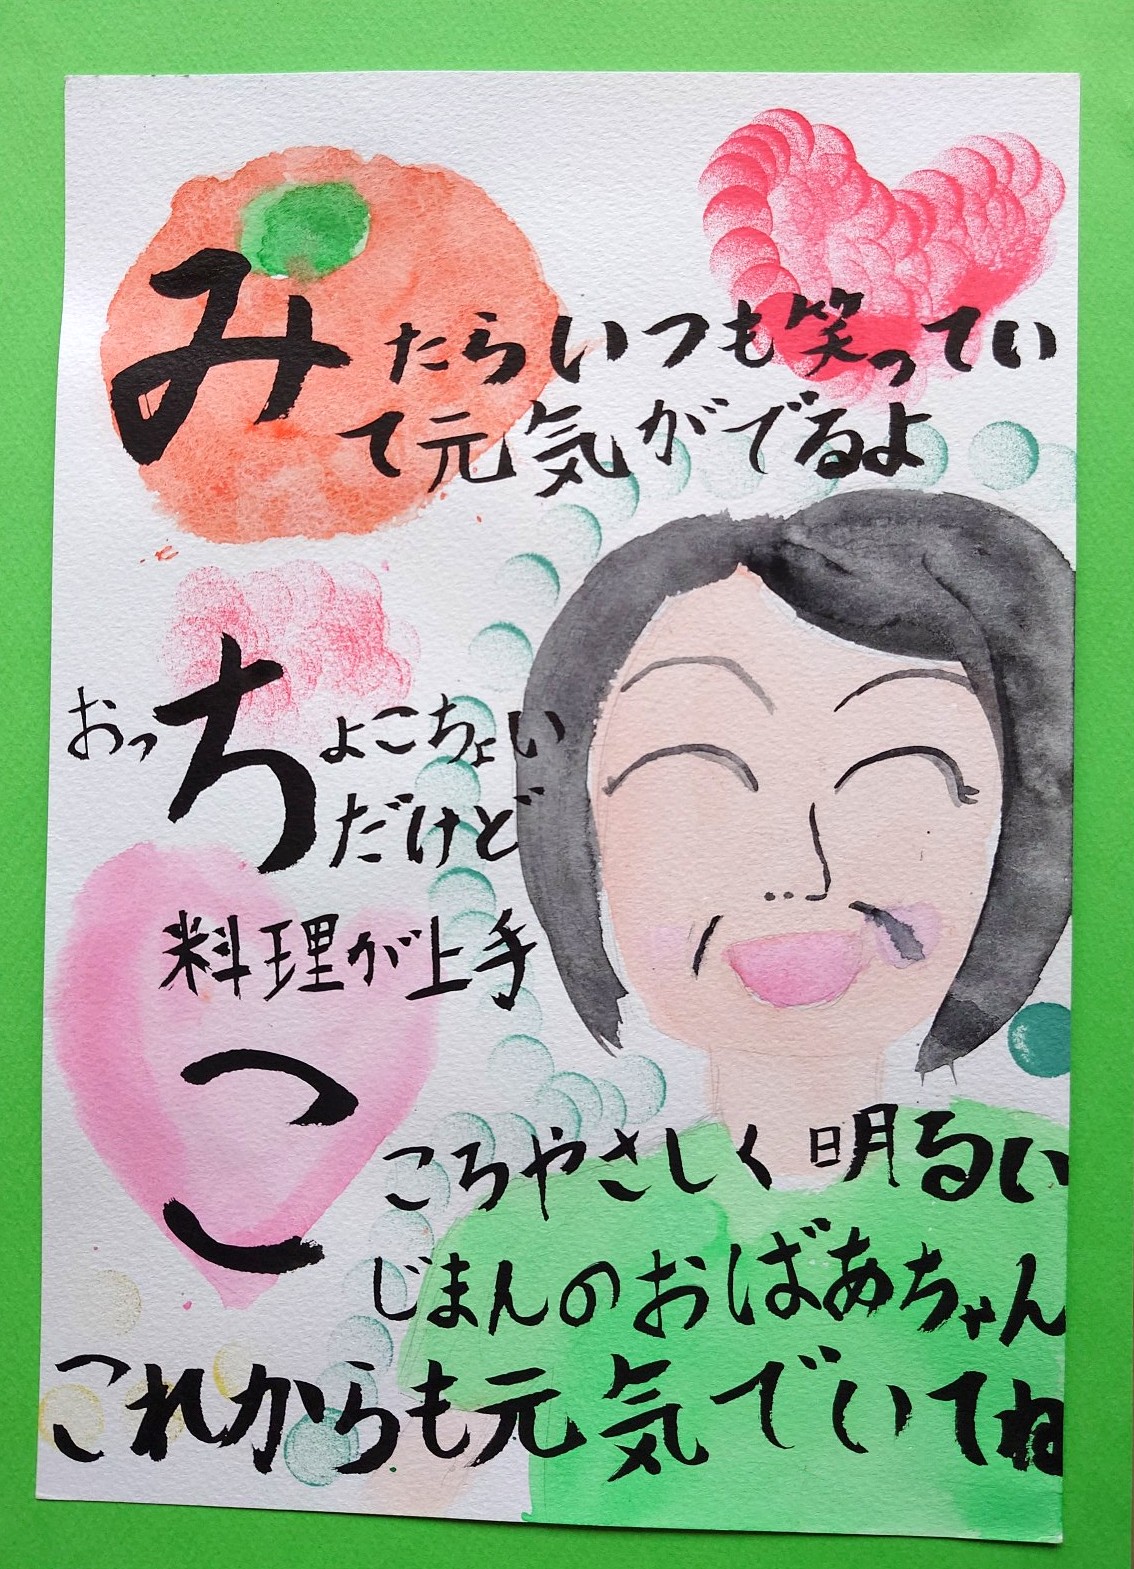 みたらいつも笑ってい
て元気がでるよ
おっちょこちょい
だけど
料理が上手
こころやさしく明るい
じまんのおばあちゃん
これからも元気でいてね